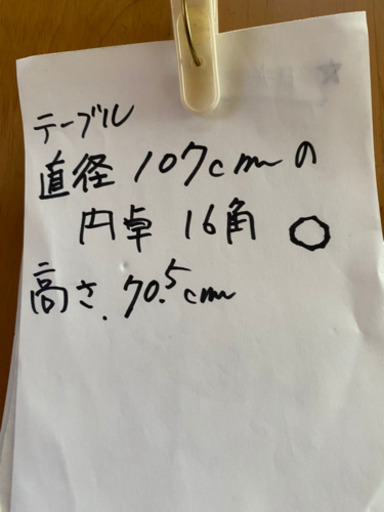 テーブル
直径107cmの
円卓 16角
高さ.70.5cm